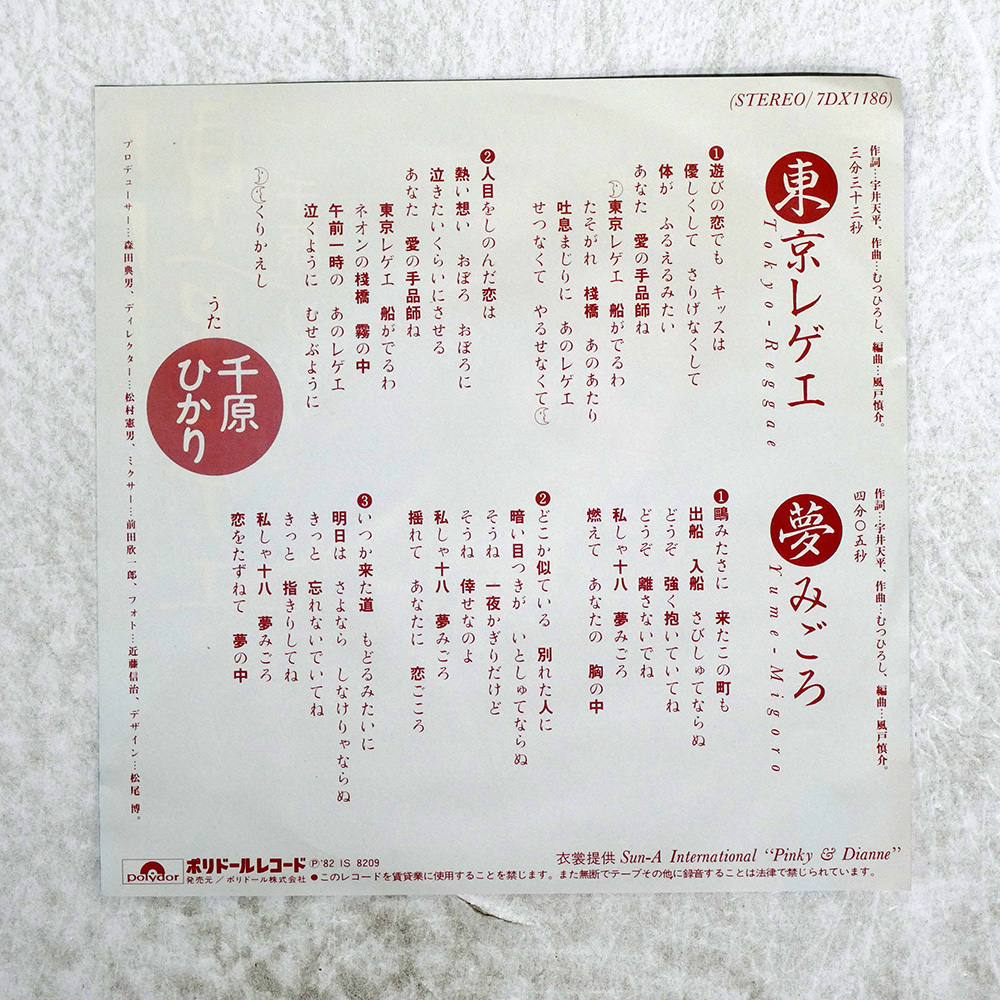 (STEREO/7DX1186)
東京レゲエ
Tokyo-Reggae
作詞…宇井天平、作曲…むつひろし、編曲…風戸慎介。
三分三十三秒
❶遊びの恋でも キッスは
優しくして さりげなくして
体が ふるえるみたい
あなた 愛の手品師ね
東京レゲエ 船がでるわ
たそがれ 桟橋 あのあたり
吐息まじりに あのレゲエ
せつなくて やるせなくて
❷人目をしのんだ恋は
熱い想い おぼろ おぼろに
泣きたいくらいにさせる
あなた 愛の手品師ね
東京レゲエ 船がでるわ
ネオンの棧橋 霧の中
午前一時の あのレゲエ
泣くように むせぶように
くりかえし
うた
千原
ひかり
夢みごろ
Yume-Migoro
作詞…宇井天平、作曲…むつひろし、編曲…風戸慎介。
四分〇五秒
❶鷗みたさに 来たこの町も
出船 入船 さびしゅてならぬ
どうぞ 強く抱いていてね
どうぞ 離さないでね
私しゃ十八 夢みごろ
燃えて あなたの 胸の中
❷どこか似ている 別れた人に
暗い目つきが いとしゅてならぬ
そうね 一夜かぎりだけど
そうね 倖せなのよ
私しゃ十八 夢みごろ
揺れて あなたに 恋ごころ
❸いつか来た道 もどるみたいに
明日は さよなら しなけりゃならぬ
きっと 忘れないでいてね
きっと 指きりしてね
私しゃ十八 夢みごろ
恋をたずねて 夢の中
プロデューサー…森田典男、ディレクター…松村憲男、ミクサー…前田欣一郎、フォト…近藤信治、デザイン…松尾 博。
衣裳提供 Sun-A International “Pinky & Dianne”
polydor
ポリドールレコード Ⓟ'82 IS 8209
発売元/ポリドール株式会社 ●このレコードを賃貸業に使用することを禁じます。また無断でテープその他に録音することは法律で禁じられています。